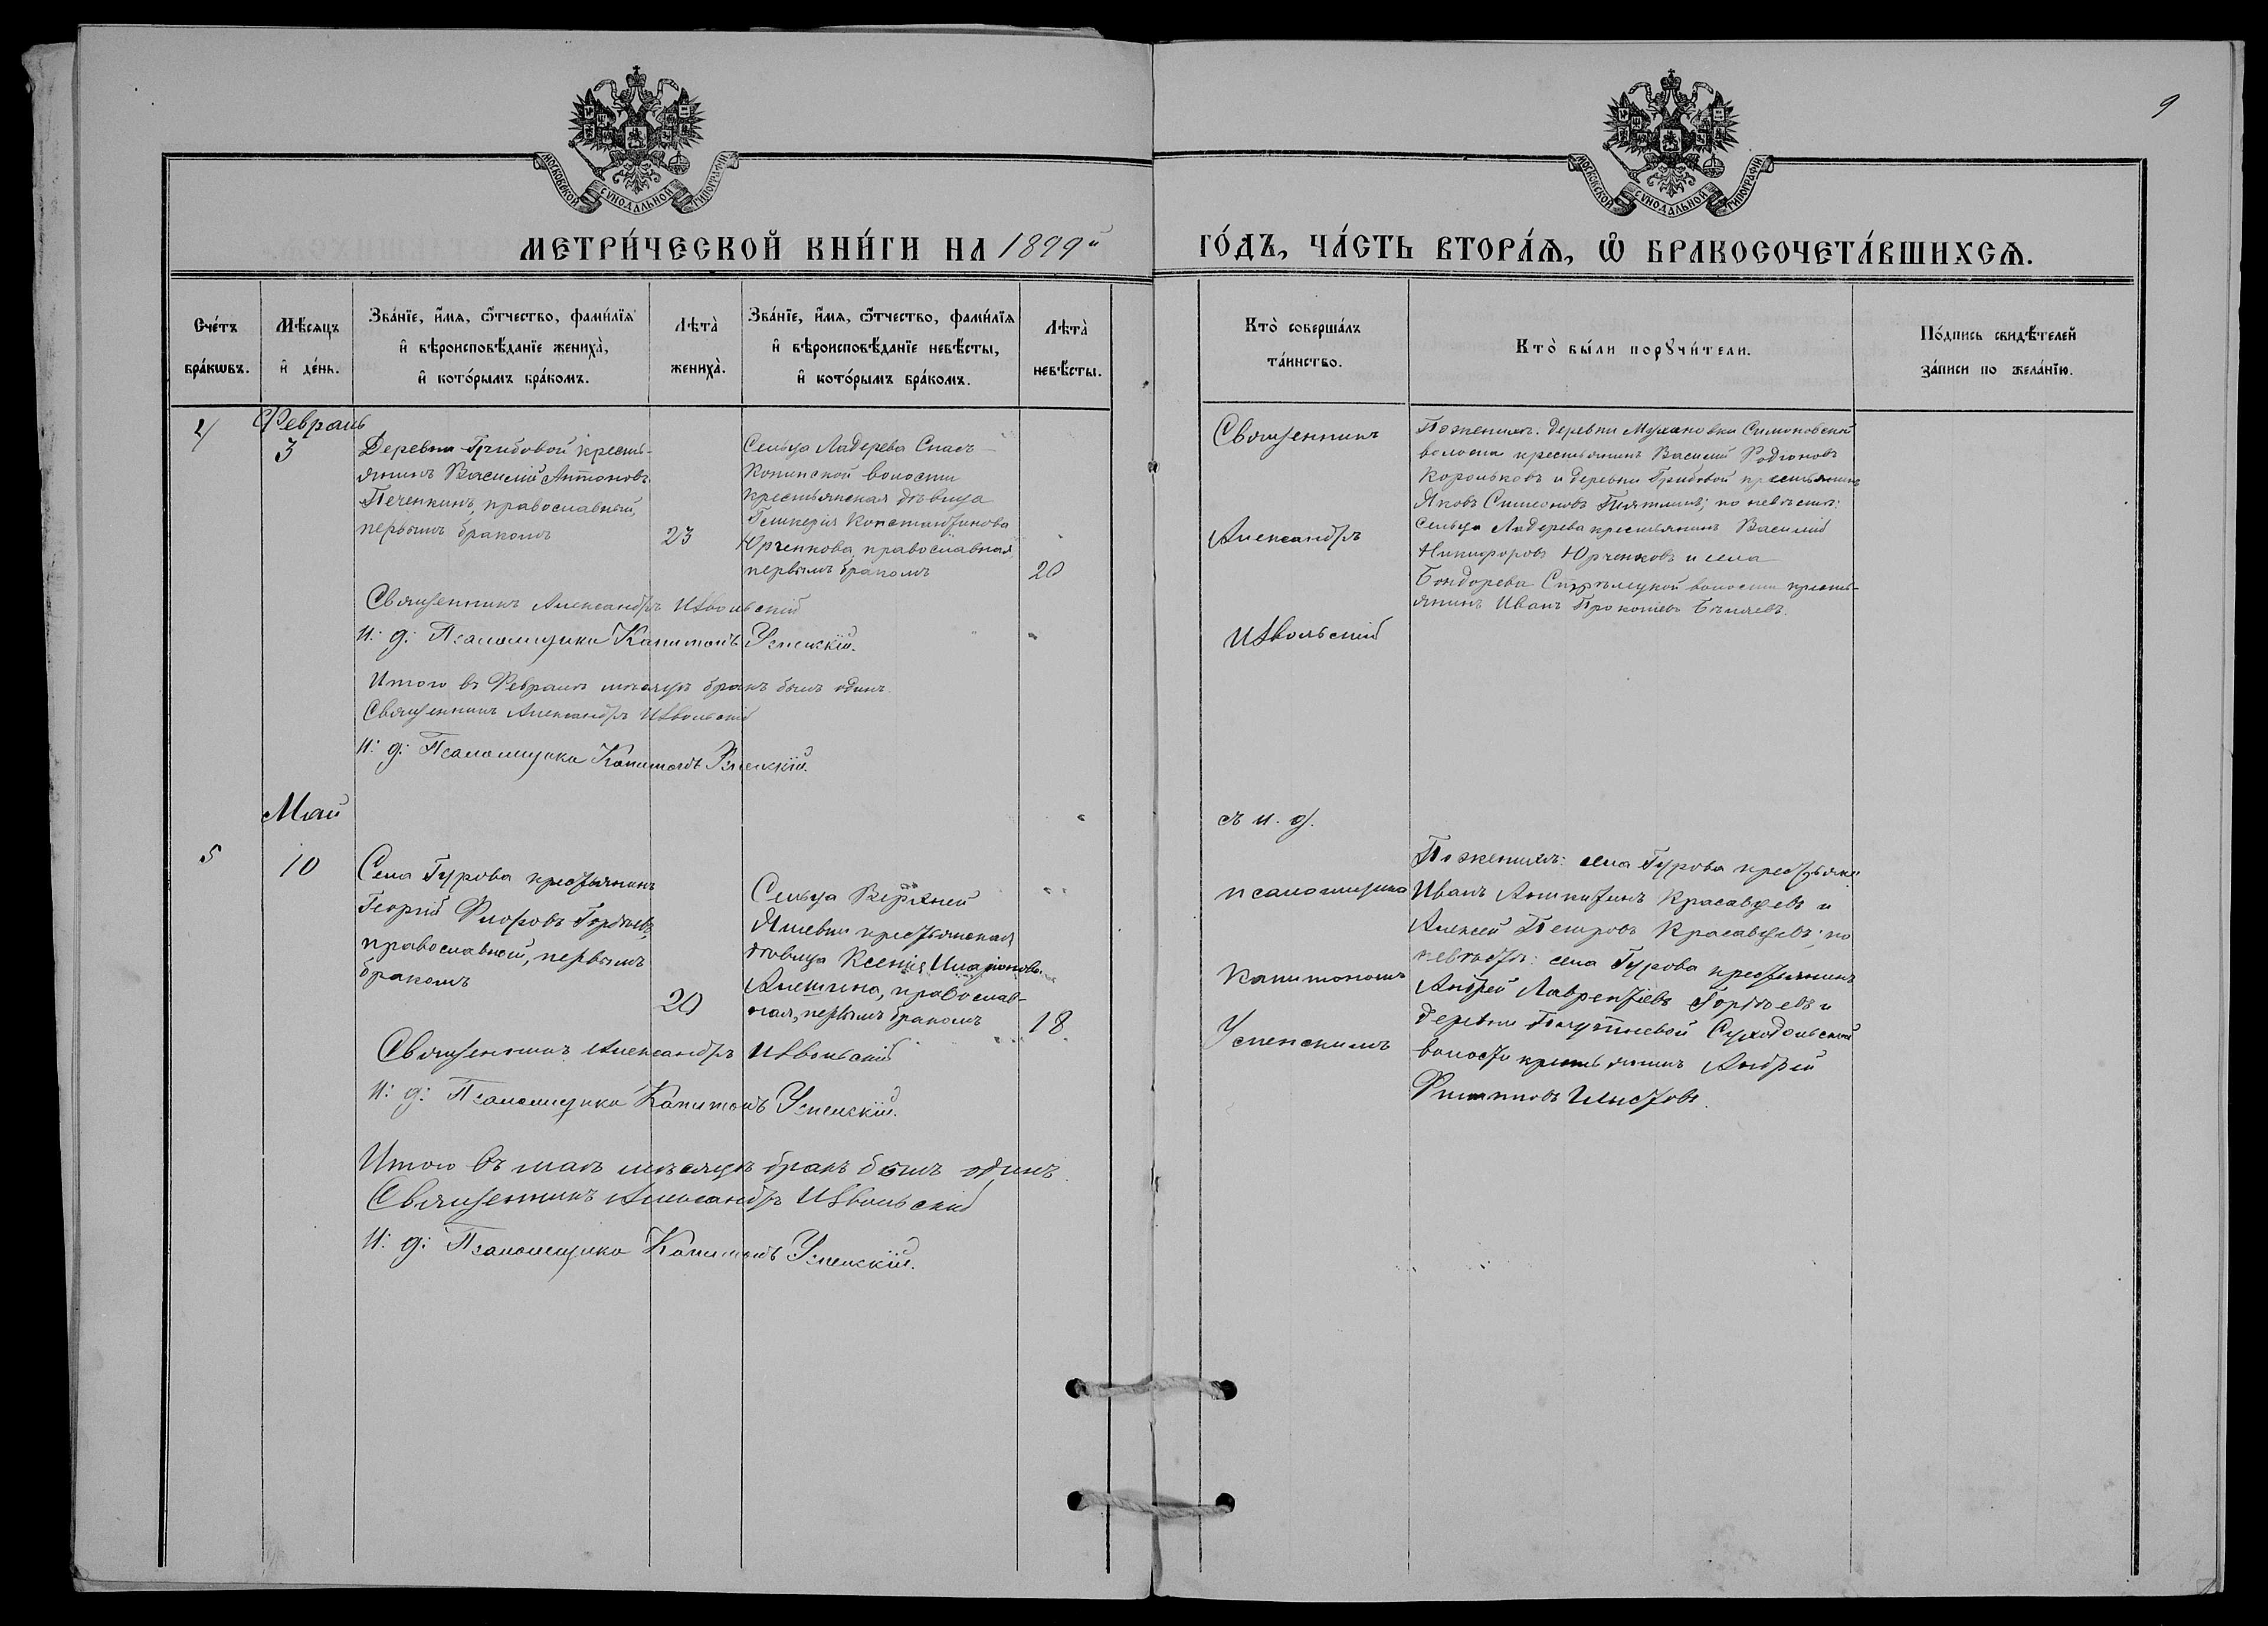 9
МОСКОВСКОЙ СѴНОДАЛЬНОЙ ТИПОГРАФІИ
МОСКОВСКОЙ СѴНОДАЛЬНОЙ ТИПОГРАФІИ
МЕТРИ́ЧЕСКОЙ КНИ́ГИ НА 1899й
ГО́ДЪ, ЧА́СТЬ ВТОРА́Ѧ, Ѿ БРАКОСОЧЕТА́ВШИХСѦ.
Сче́тъ
бра́кѡвъ.
Мѣ́сѧцъ
и҆ де́нь.
Зва́нїе, и҆́мѧ, ѻ҆́тчество, фами́лїѧ
и҆ вѣроисповѣ́данїе жениха̀,
и҆ кото́рымъ бра́комъ.
Лѣта̀
жениха̀.
Зва́нїе, и҆́мѧ, ѻ҆́тчество, фами́лїѧ
и҆ вѣроисповѣ́данїе невѣ́сты,
и҆ кото́рымъ бра́комъ.
Лѣта̀
невѣ́сты.
Кто̀ соверша́лъ
та́инство.
Кто̀ бы́ли порꙋчи́тели.
По́дпись свидѣ́телей
за́писи по жела́нїю.
4
Февраль
3
Деревни Грибовой кресть-
янинъ Василий Антоновъ
Печенкинъ, православный,
первымъ бракомъ
23
Сельца Ладерева Спасъ-
Копинской волости
крестьянская дѣвица
Гликерія Константинова
Юрченкова, православная
первымъ бракомъ
20
Священникъ
Александръ
Извольскій
По женихѣ: деревни Мухановки Симоновской
волости крестьянинъ Василий Родіоновъ
Корольковъ и деревни Грибовой крестьянинъ
Яковъ Симеоновъ; по невѣстѣ:
сельца Ладерева крестьянинъ Василий
Никифоровъ Юрченковъ и села
Бондорева волости кресть-
янинъ Иванъ Прокопіевъ Бѣляевъ.
Священникъ Александръ Извольскій
И: д: Псаломщика Капитонъ Успенскій.
Итого въ Февралѣ мѣсяцѣ бракъ былъ одинъ.
Священникъ Александръ Извольскій
И: д: Псаломщика Капитонъ Успенскій.
Май
5
10
Села Гурова крестьянинъ
Георгій Флоровъ Гордѣевъ,
православный, первымъ
бракомъ
20
Сельца Верхней
крестьянская
дѣвица Ксенія Иларіонова
Алешина, православ-
ная, первымъ бракомъ
18
съ и. д.
псаломщика
Капитономъ
Успенскимъ
По женихѣ: села Гурова крестьяне
Иванъ Антипинъ Красавцевъ и
Алексей Петровъ Красавцевъ; по
невѣстѣ: села Гурова крестьянинъ
Андрей Лаврентіевъ Гордѣевъ и
деревни Суходольской
волости крестьянинъ Андрей
Филипповъ
Священникъ Александръ Извольскій
И: д: Псаломщика Капитонъ Успенскій.
Итого въ маѣ мѣсяцѣ бракъ былъ одинъ.
Священникъ Александръ Извольскій
И: д: Псаломщика Капитонъ Успенскій.